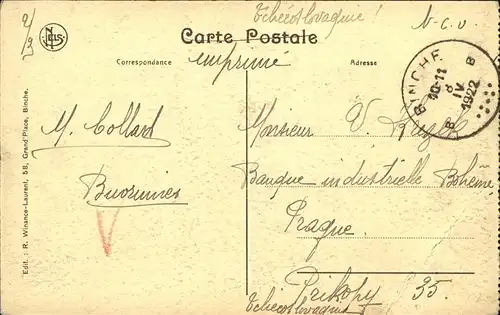 Tchécoslovaquie!
N.C.V.
2/3
Nels
Carte Postale
Correspondance
Adresse
imprimé
BINCHE
10-11
8
IV
1922
B B
M. Collard
Buvrinnes
V
Monsieur V.
Banque industrielle Bohème
Prague.
Prikopy 35.
Tchécoslovaquie
Edit. : R. Winance-Laurent, 58, Grand'Place, Binche.